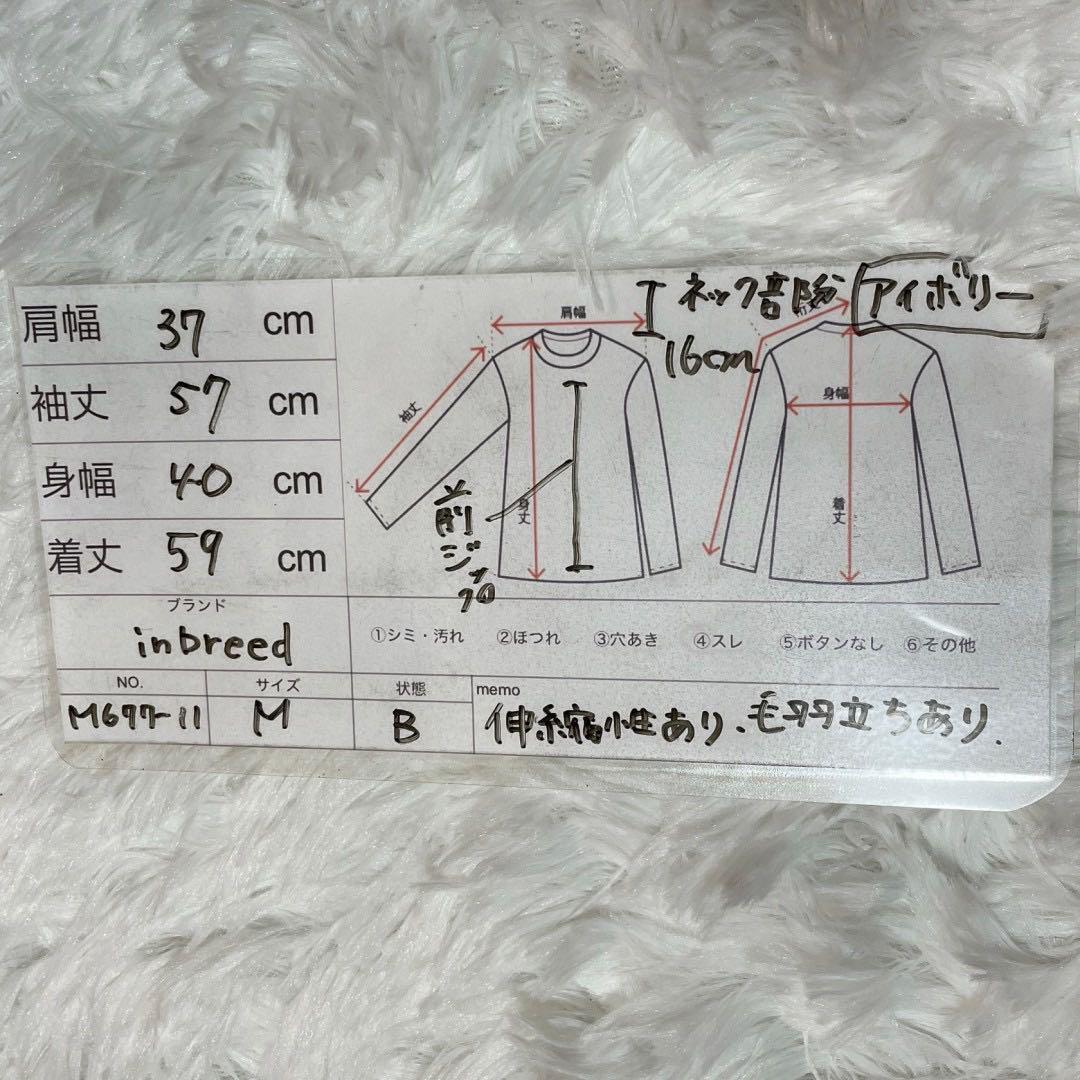 肩幅 37 cm
袖丈 57 cm
身幅 40 cm
着丈 59 cm
ブランド
inbreed
NO.
M677-11
サイズ
M
状態
B
memo
伸縮性あり、毛羽立ちあり.
①シミ・汚れ ②ほつれ ③穴あき ④スレ ⑤ボタンなし ⑥その他
肩幅
袖丈
身丈
前ジップ
ネック部分
16cm
アイボリー
裄丈
身幅
着丈